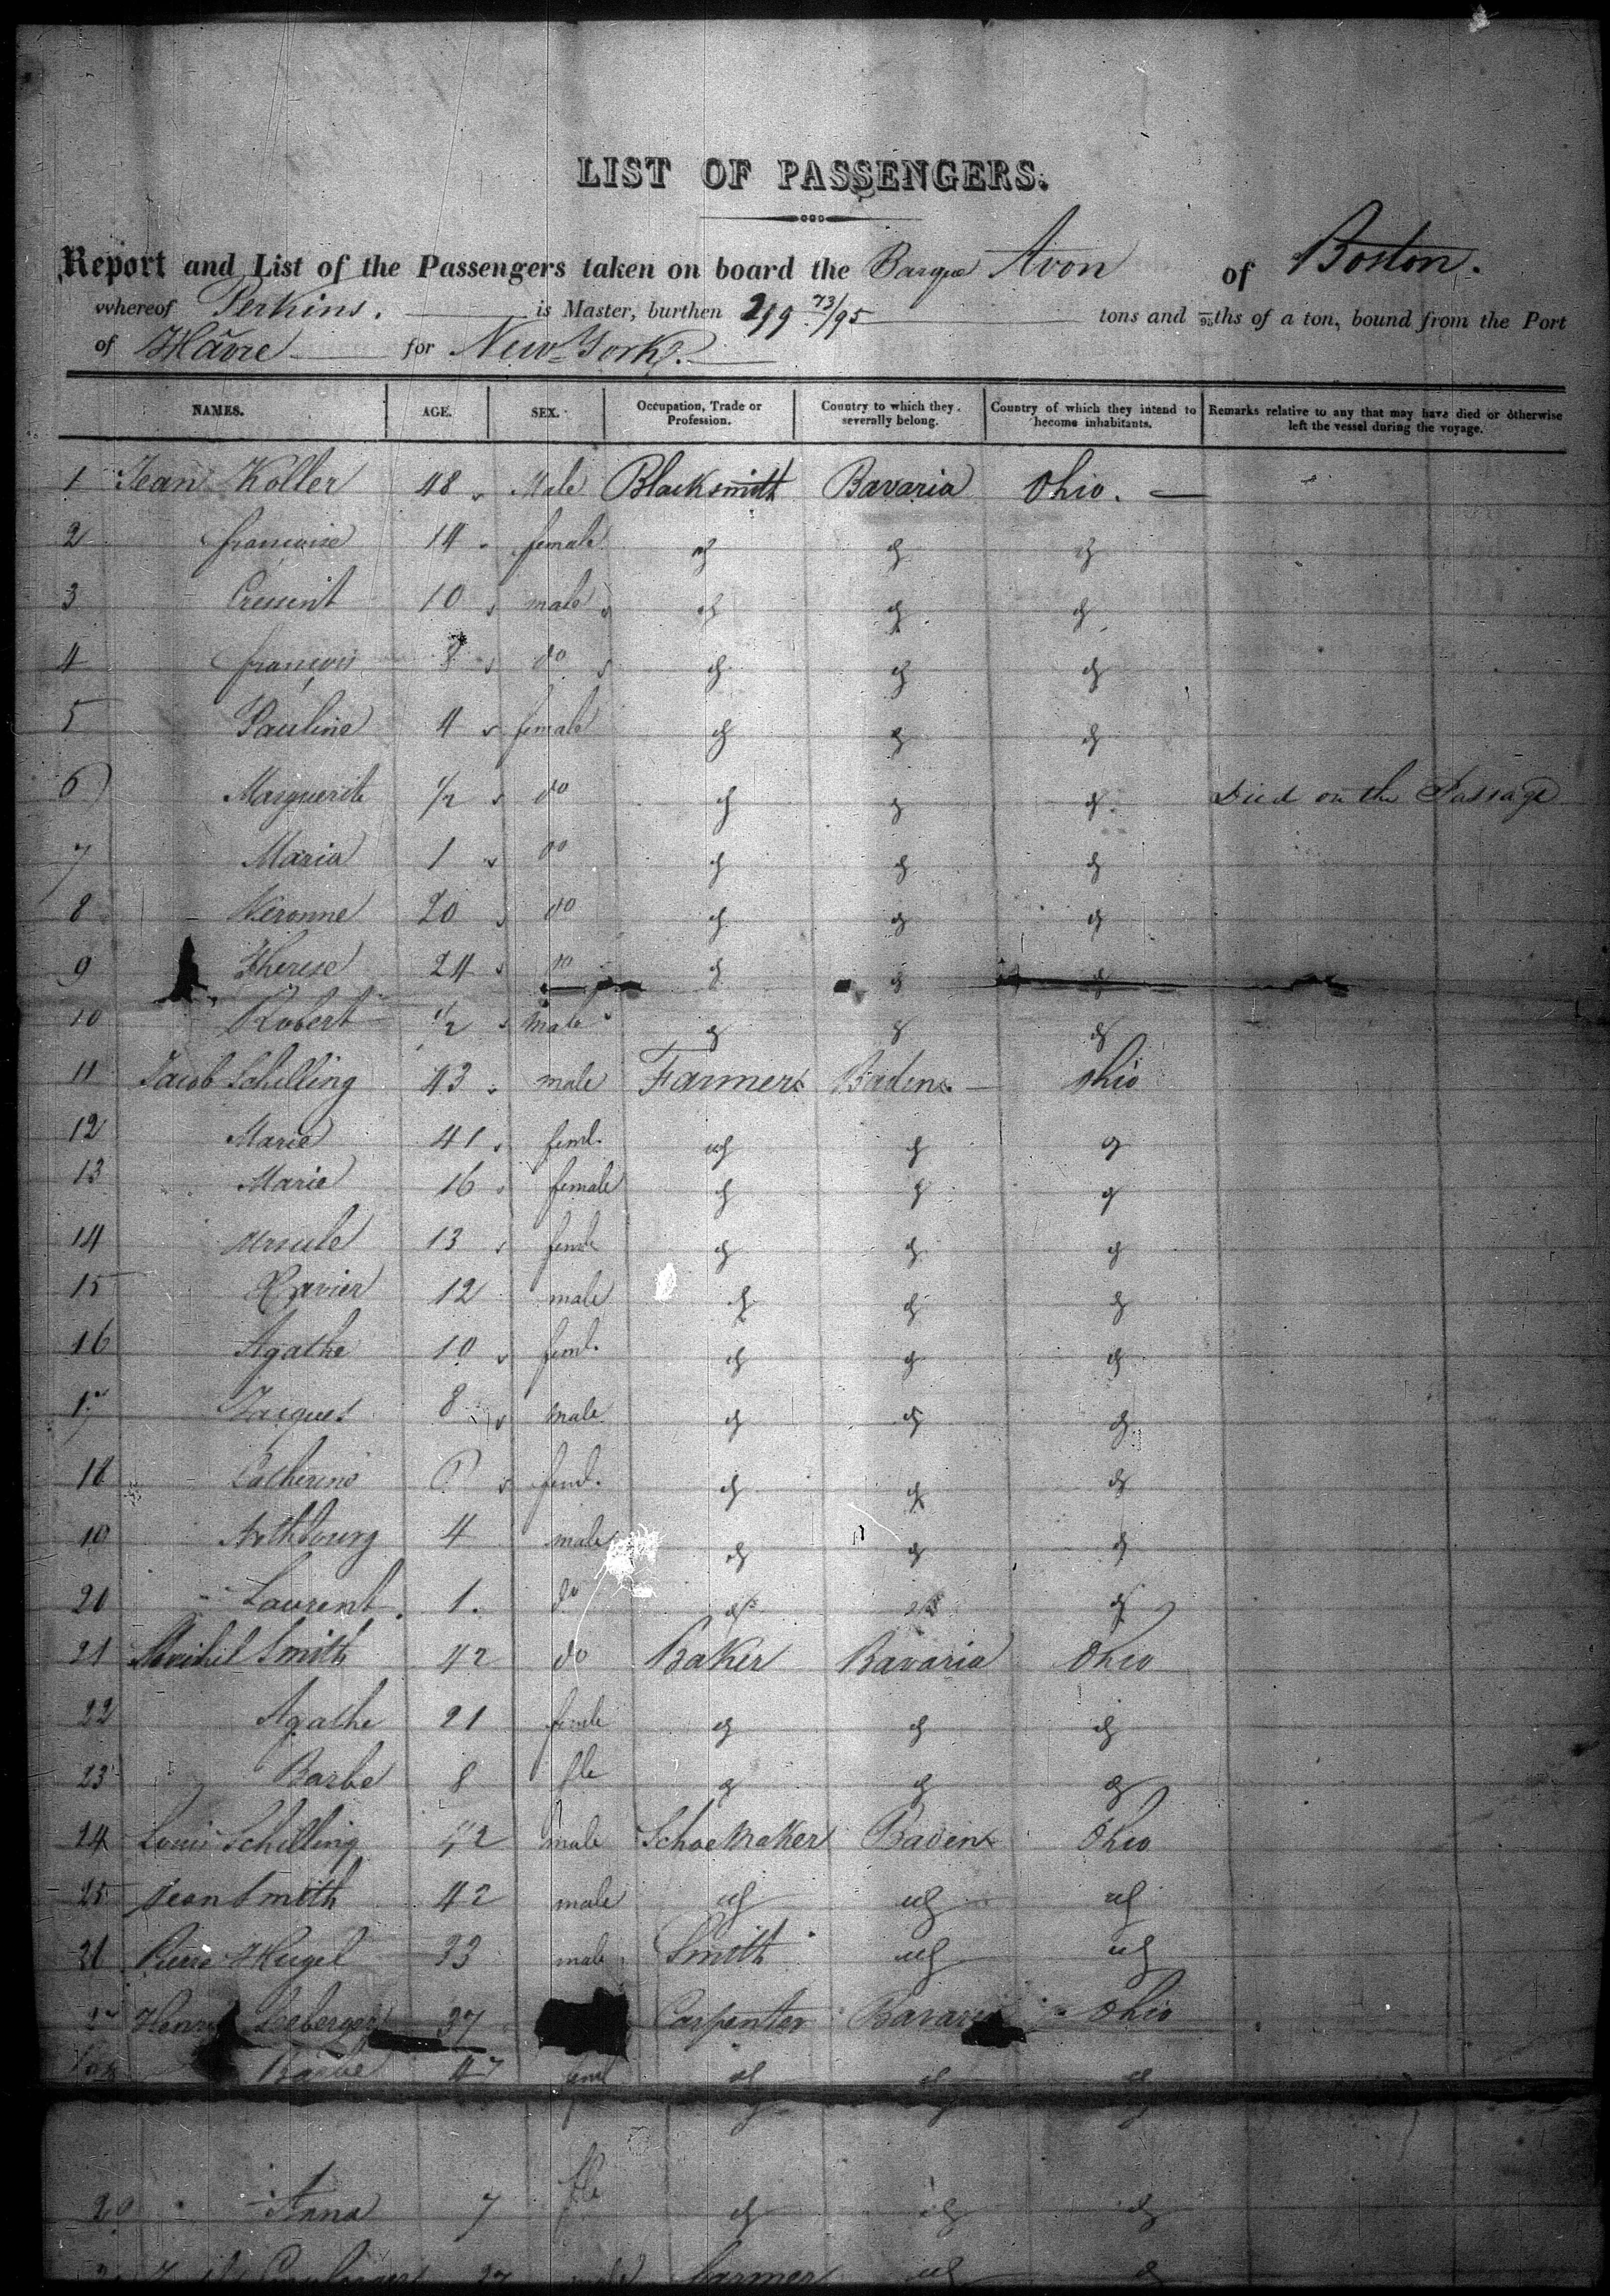 LIST OF PASSENGERS.
Report and List of the Passengers taken on board the Barque Avon of Boston.
whereof Perkins. is Master, burthen 219 73/95 tons and /95ths of a ton, bound from the Port
of Hâvre for New-York.
NAMES. AGE. SEX. Occupation, Trade or Profession. Country to which they severally belong. Country of which they intend to become inhabitants. Remarks relative to any that may have died or otherwise left the vessel during the voyage.
1 Jean Koller 48 Male Blacksmith Bavaria Ohio.
2 françoise 14 female
3 10 male
4 françois 8 do
5 Pauline 4 female
6 Marguerite 1/2 do Died on the Passage
7 Maria 1 do
8 20 do
9 Therese 24 do
10 Robert 1/2 male
11 Jacob Schilling 43 male Farmer Baden Ohio
12 Marie 41 feml.
13 Marie 16 female
14 Ursule 13 femle
15 Xavier 12 male
16 Agathe 10 feml.
17 Jacques 8 male
18 Catherine feml.
19 4 male
20 Laurent. 1. do
21 Smith 42 do Baker Bavaria Ohio
22 Agathe 21 femle
23 Barbe 8 fle
24 Louis Schilling 42 male Schoemaker Baden Ohio
25 Jean Smith 42 male
26 Pierre Hugel 33 male Smith
Henry 37 Carpenter Bavaria Ohio
Barbe 47 feml
Anna 7 fle
37 male farmer